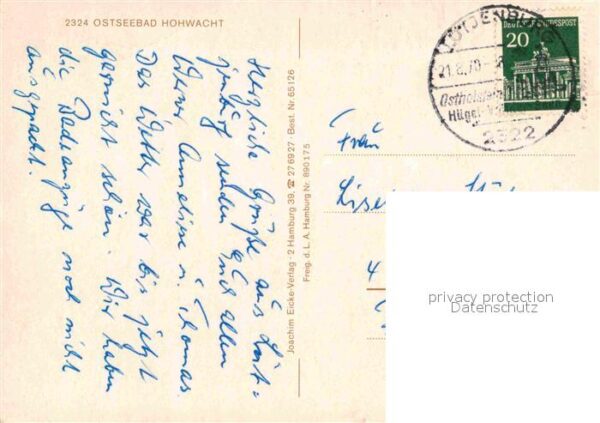 2324 OSTSEEBAD HOHWACHT
Herzliche Grüße aus Lüt=
jenburg senden Euch allen
Werner Anneliese u. Thomas.
Das Wetter war bis jetzt
garnicht schön. Wir haben
die Badeanzüge noch nicht
ausgepackt.
Joachim Eicke-Verlag · 2 Hamburg 39, ☎ 276927 · Best. Nr. 65126
Freig. d. L. A. Hamburg Nr. 890175
LÜTJENBURG
21.8.70
Ostholstein
Hügel
2322
DEUTSCHE BUNDESPOST
20
Frau
4
privacy protection
Datenschutz